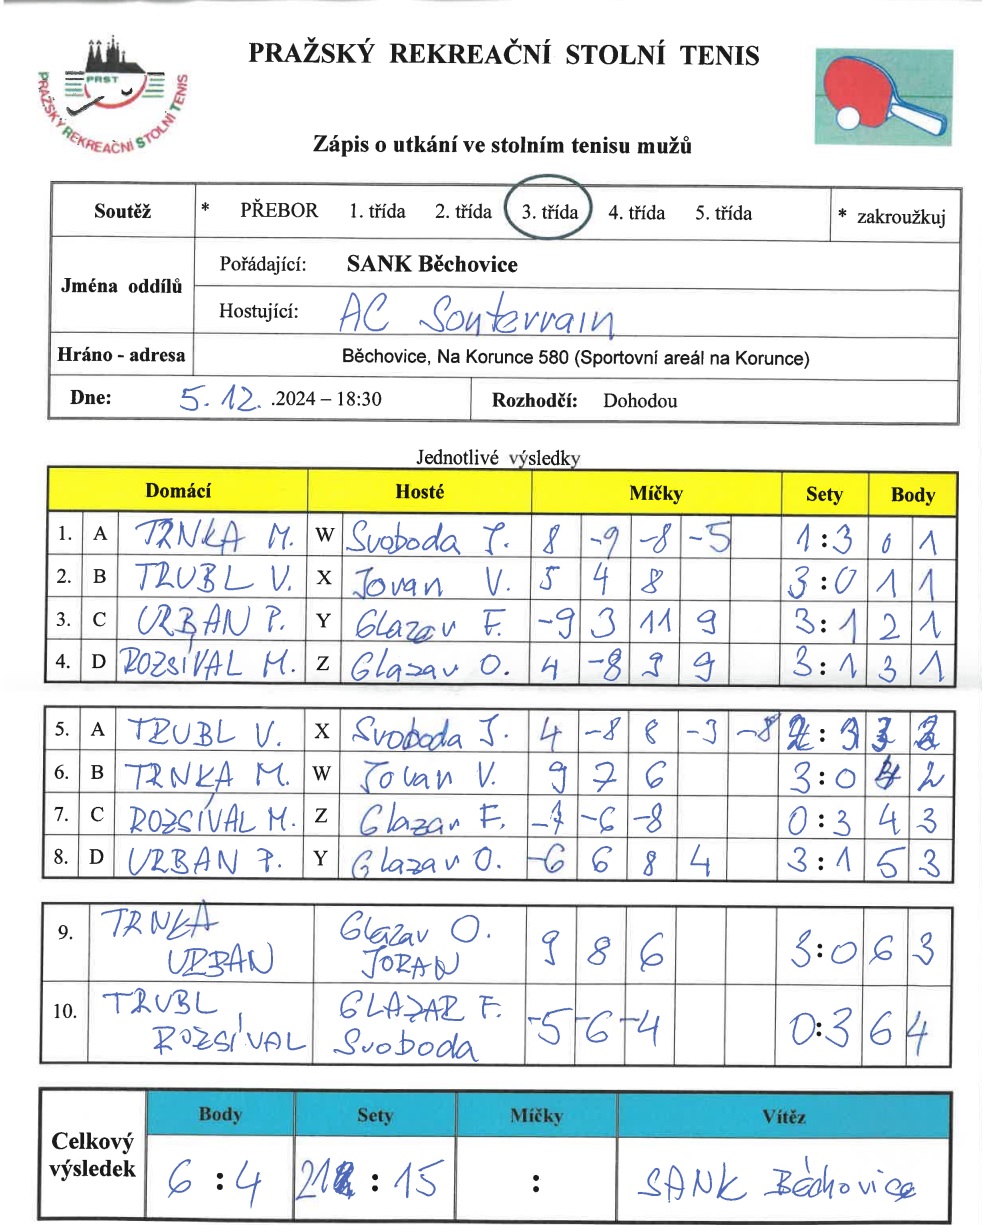 PRAŽSKÝ REKREAČNÍ STOLNÍ TENIS
PRST
PRAŽSKÝ REKREAČNÍ STOLNÍ TENIS
Zápis o utkání ve stolním tenisu mužů
Soutěž * PŘEBOR 1. třída 2. třída 3. třída 4. třída 5. třída * zakroužkuj
Jména oddílů
Pořádající: SANK Běchovice
Hostující: AC Souterrain
Hráno - adresa Běchovice, Na Korunce 580 (Sportovní areál na Korunce)
Dne: 5. 12. .2024 – 18:30 Rozhodčí: Dohodou
Jednotlivé výsledky
Domácí Hosté Míčky Sety Body
1. A TRNKA M. W Svoboda J. 8 -9 -8 -5 1:3 0 1
2. B TRUBL V. X Jovan V. 5 4 8 3:0 1 1
3. C URBAN P. Y Glazar F. -9 3 11 9 3:1 2 1
4. D ROZSÍVAL M. Z Glazar O. 4 -8 9 9 3:1 3 1
5. A TRUBL V. X Svoboda J. 4 -8 8 -3 -8 2:3 3 2
6. B TRNKA M. W Jovan V. 9 7 6 3:0 4 2
7. C ROZSÍVAL M. Z Glazar F. -7 -6 -8 0:3 4 3
8. D URBAN P. Y Glazar O. -6 6 8 4 3:1 5 3
9. TRNKA URBAN Glazar O. JORAN 9 8 6 3:0 6 3
10. TRUBL ROZSÍVAL GLAZAR F. Svoboda -5 -6 -4 0:3 6 4
Celkový výsledek
Body Sety Míčky Vítěz
6:4 21:15 : SANK Běchovice